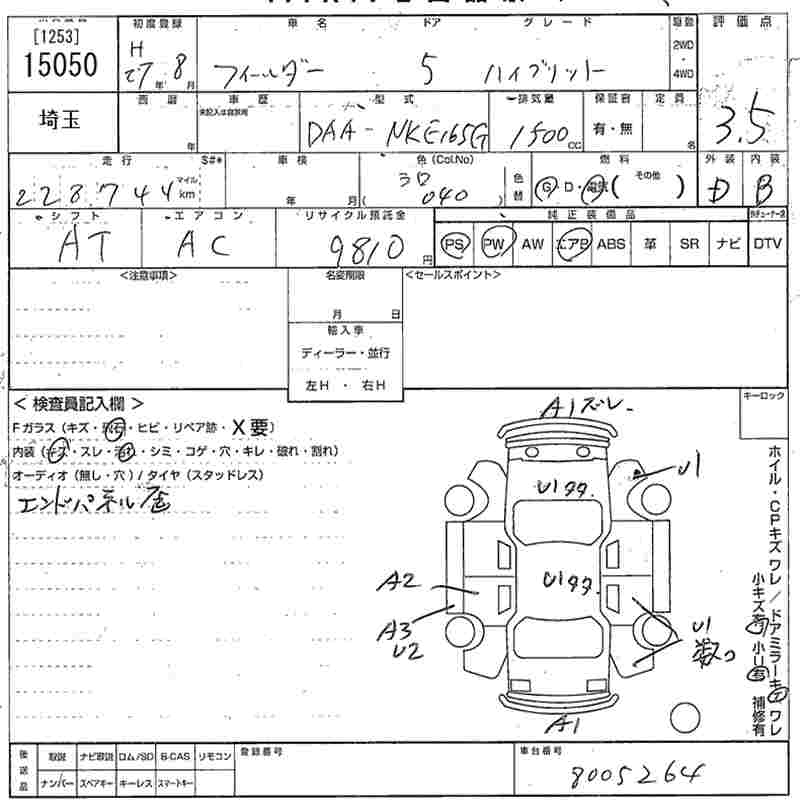 [1253]
15050
初度登録
H 27年 8月
車名
フィールダー
ドア
5
グレード
ハイブリット
駆動
2WD
4WD
評価点
3.5
埼玉
西暦
年
車歴
未記入は自家用
型式
DAA-NKE165G
排気量
1500cc
保証書
有・無
定員
名
走行
S#*
228744
マイル
km
車検
年 月
色(Col.No)
シロ
(040)
色替
燃料
G・D・電気(その他)
外装
D
内装
B
シフト
AT
エアコン
AC
リサイクル預託金
9810円
純正装備品
PS PW AW エアB ABS 革 SR ナビ
DTV
<注意事項>
名変期限
月 日
輸入車
ディーラー・並行
左H ・ 右H
<セールスポイント>
<検査員記入欄>
キーロック
Fガラス(キズ・飛石・ヒビ・リペア跡・X要)
内装(キズ・スレ・汚れ・シミ・コゲ・穴・キレ・破れ・割れ)
オーディオ(無し・穴)/タイヤ(スタッドレス)
エンドパネル凹
A1ズレ
U1タタ
U1
U1タタ
A2
A3
U2
U1
数コ
A1
ホイル・CPキズワレ/ドアミラーキズワレ
小キズ有 小U有 補修有
後送品
取説 ナビ取説 ロム/SD B-CAS リモコン
ナンバー スペアキー キーレス スマートキー
登録番号
車台番号
8005264